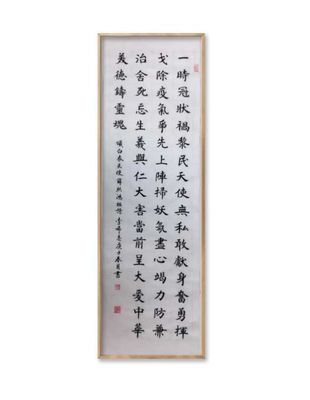 一時冠狀禍黎民天使無私敢獻身奮勇揮
戈除疫氣爭先上陣掃妖氛盡心竭力防兼
治舍死忘生義與仁大害當前呈大愛中華
美德鑄靈魂
頌白衣天使 庚子春月書